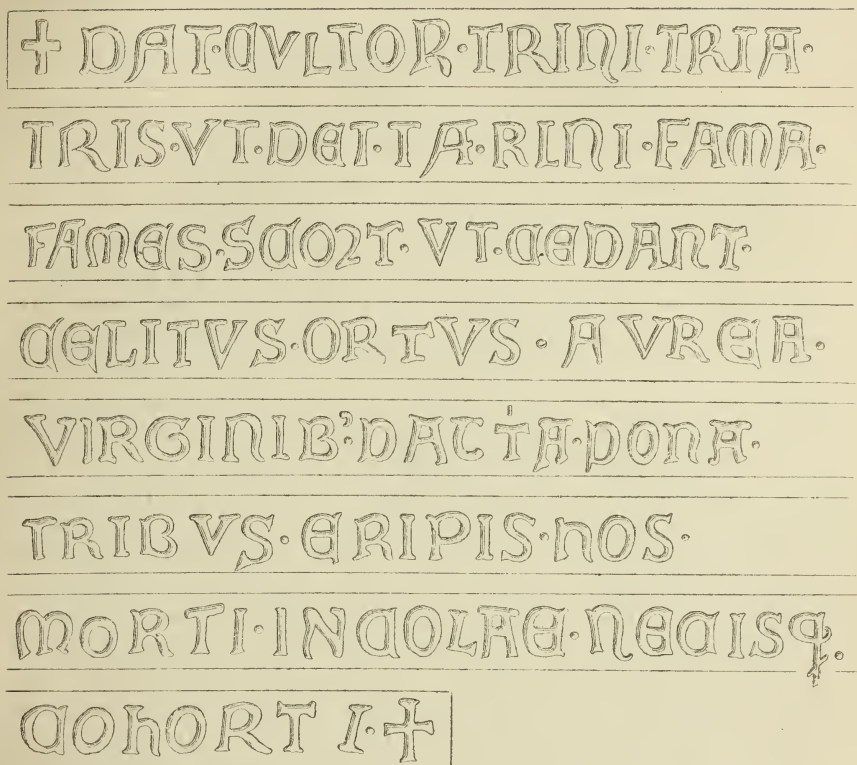 + DAT·CVLTOR·TRINI·TRIA·
TRIS·VT·DET·TA·RINI·FAMA·
FAMES·SCOꝛT·VT·CEDANT·
CELITVS·ORTVS·AVREA·
VIRGINIB’:DAT TͥA·DONA·
TRIBVS·ERIPIS·hOS·
MORTI·INCOLAE·NECISq·
COhORTI·+